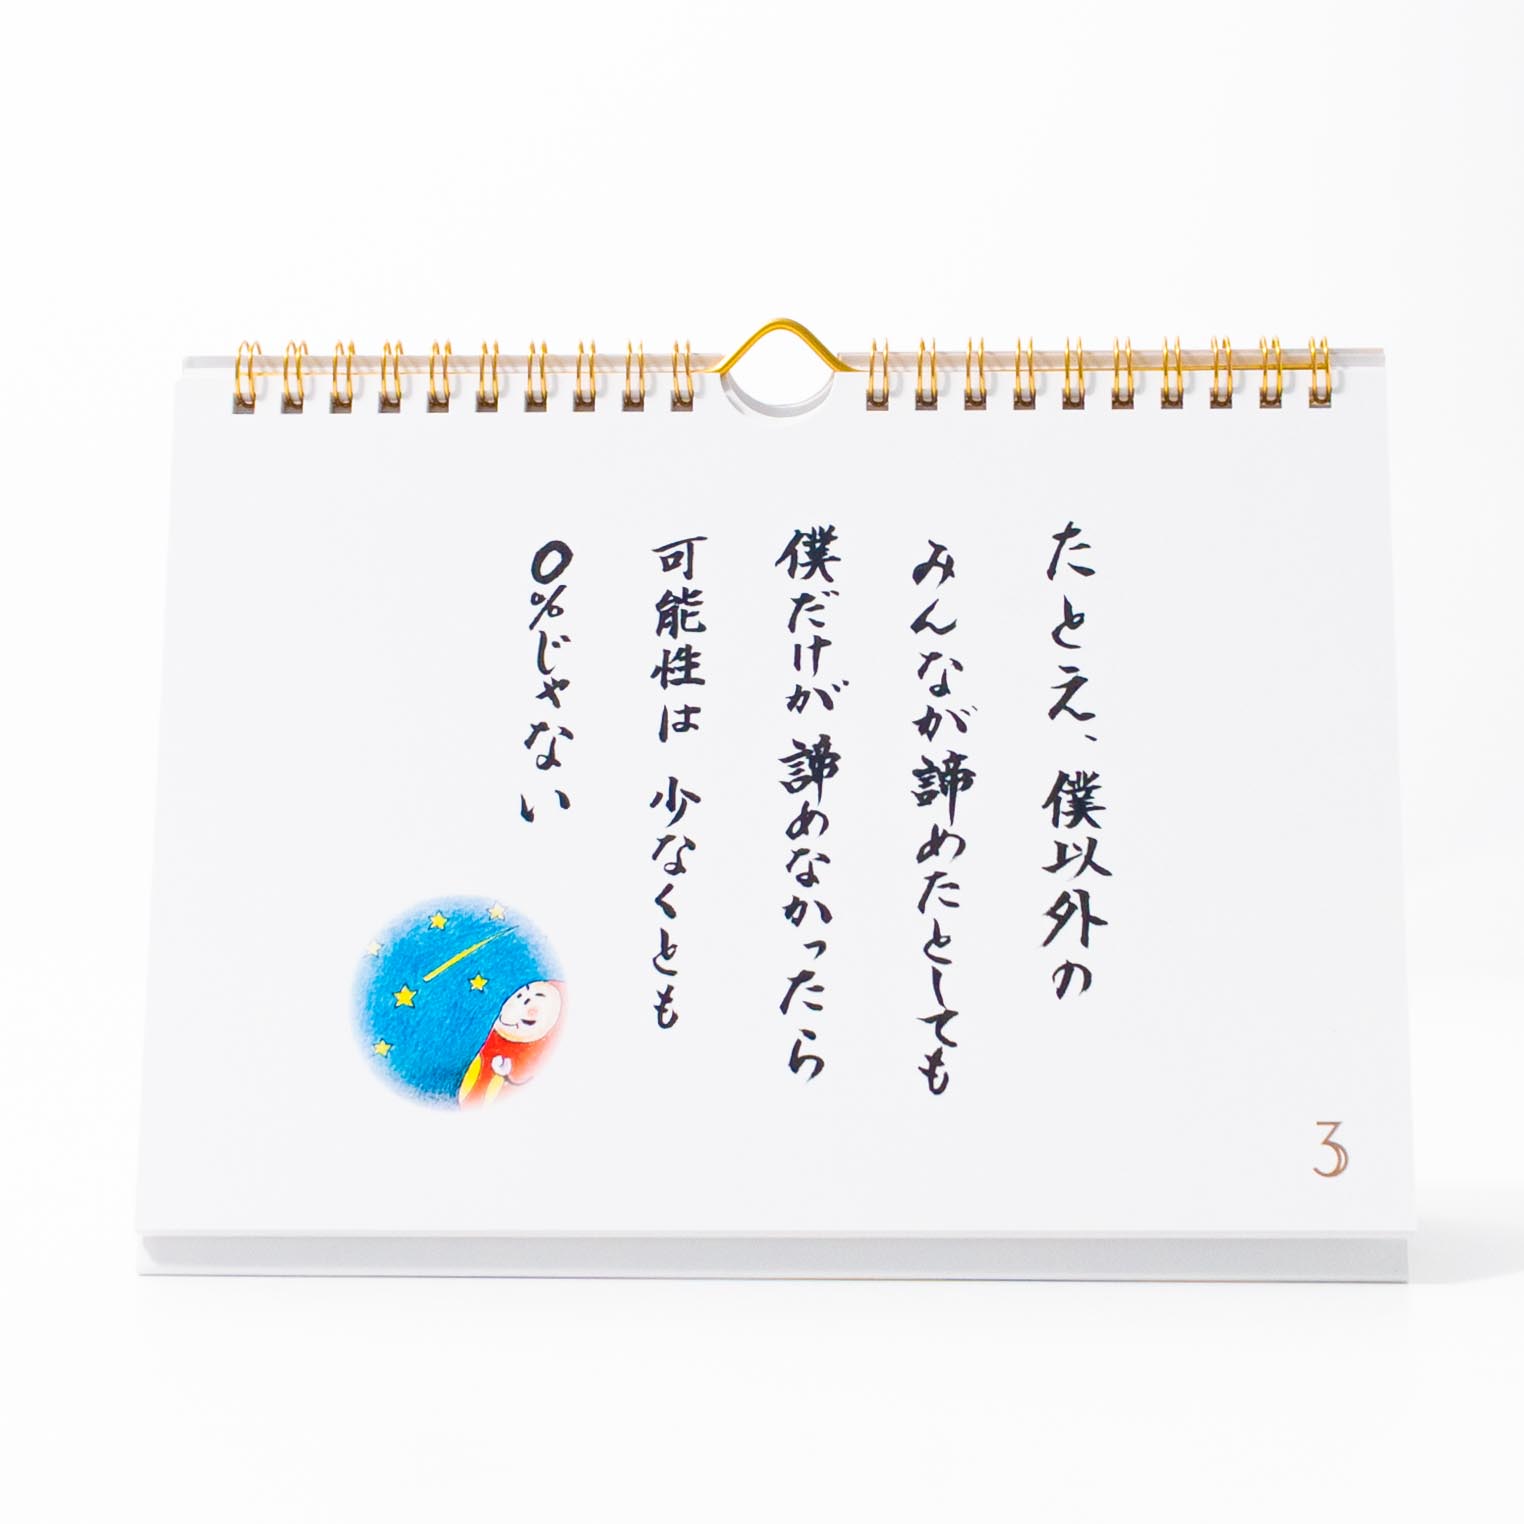 たとえ、僕以外の
みんなが諦めたとしても
僕だけが諦めなかったら
可能性は少なくとも
0%じゃない
3